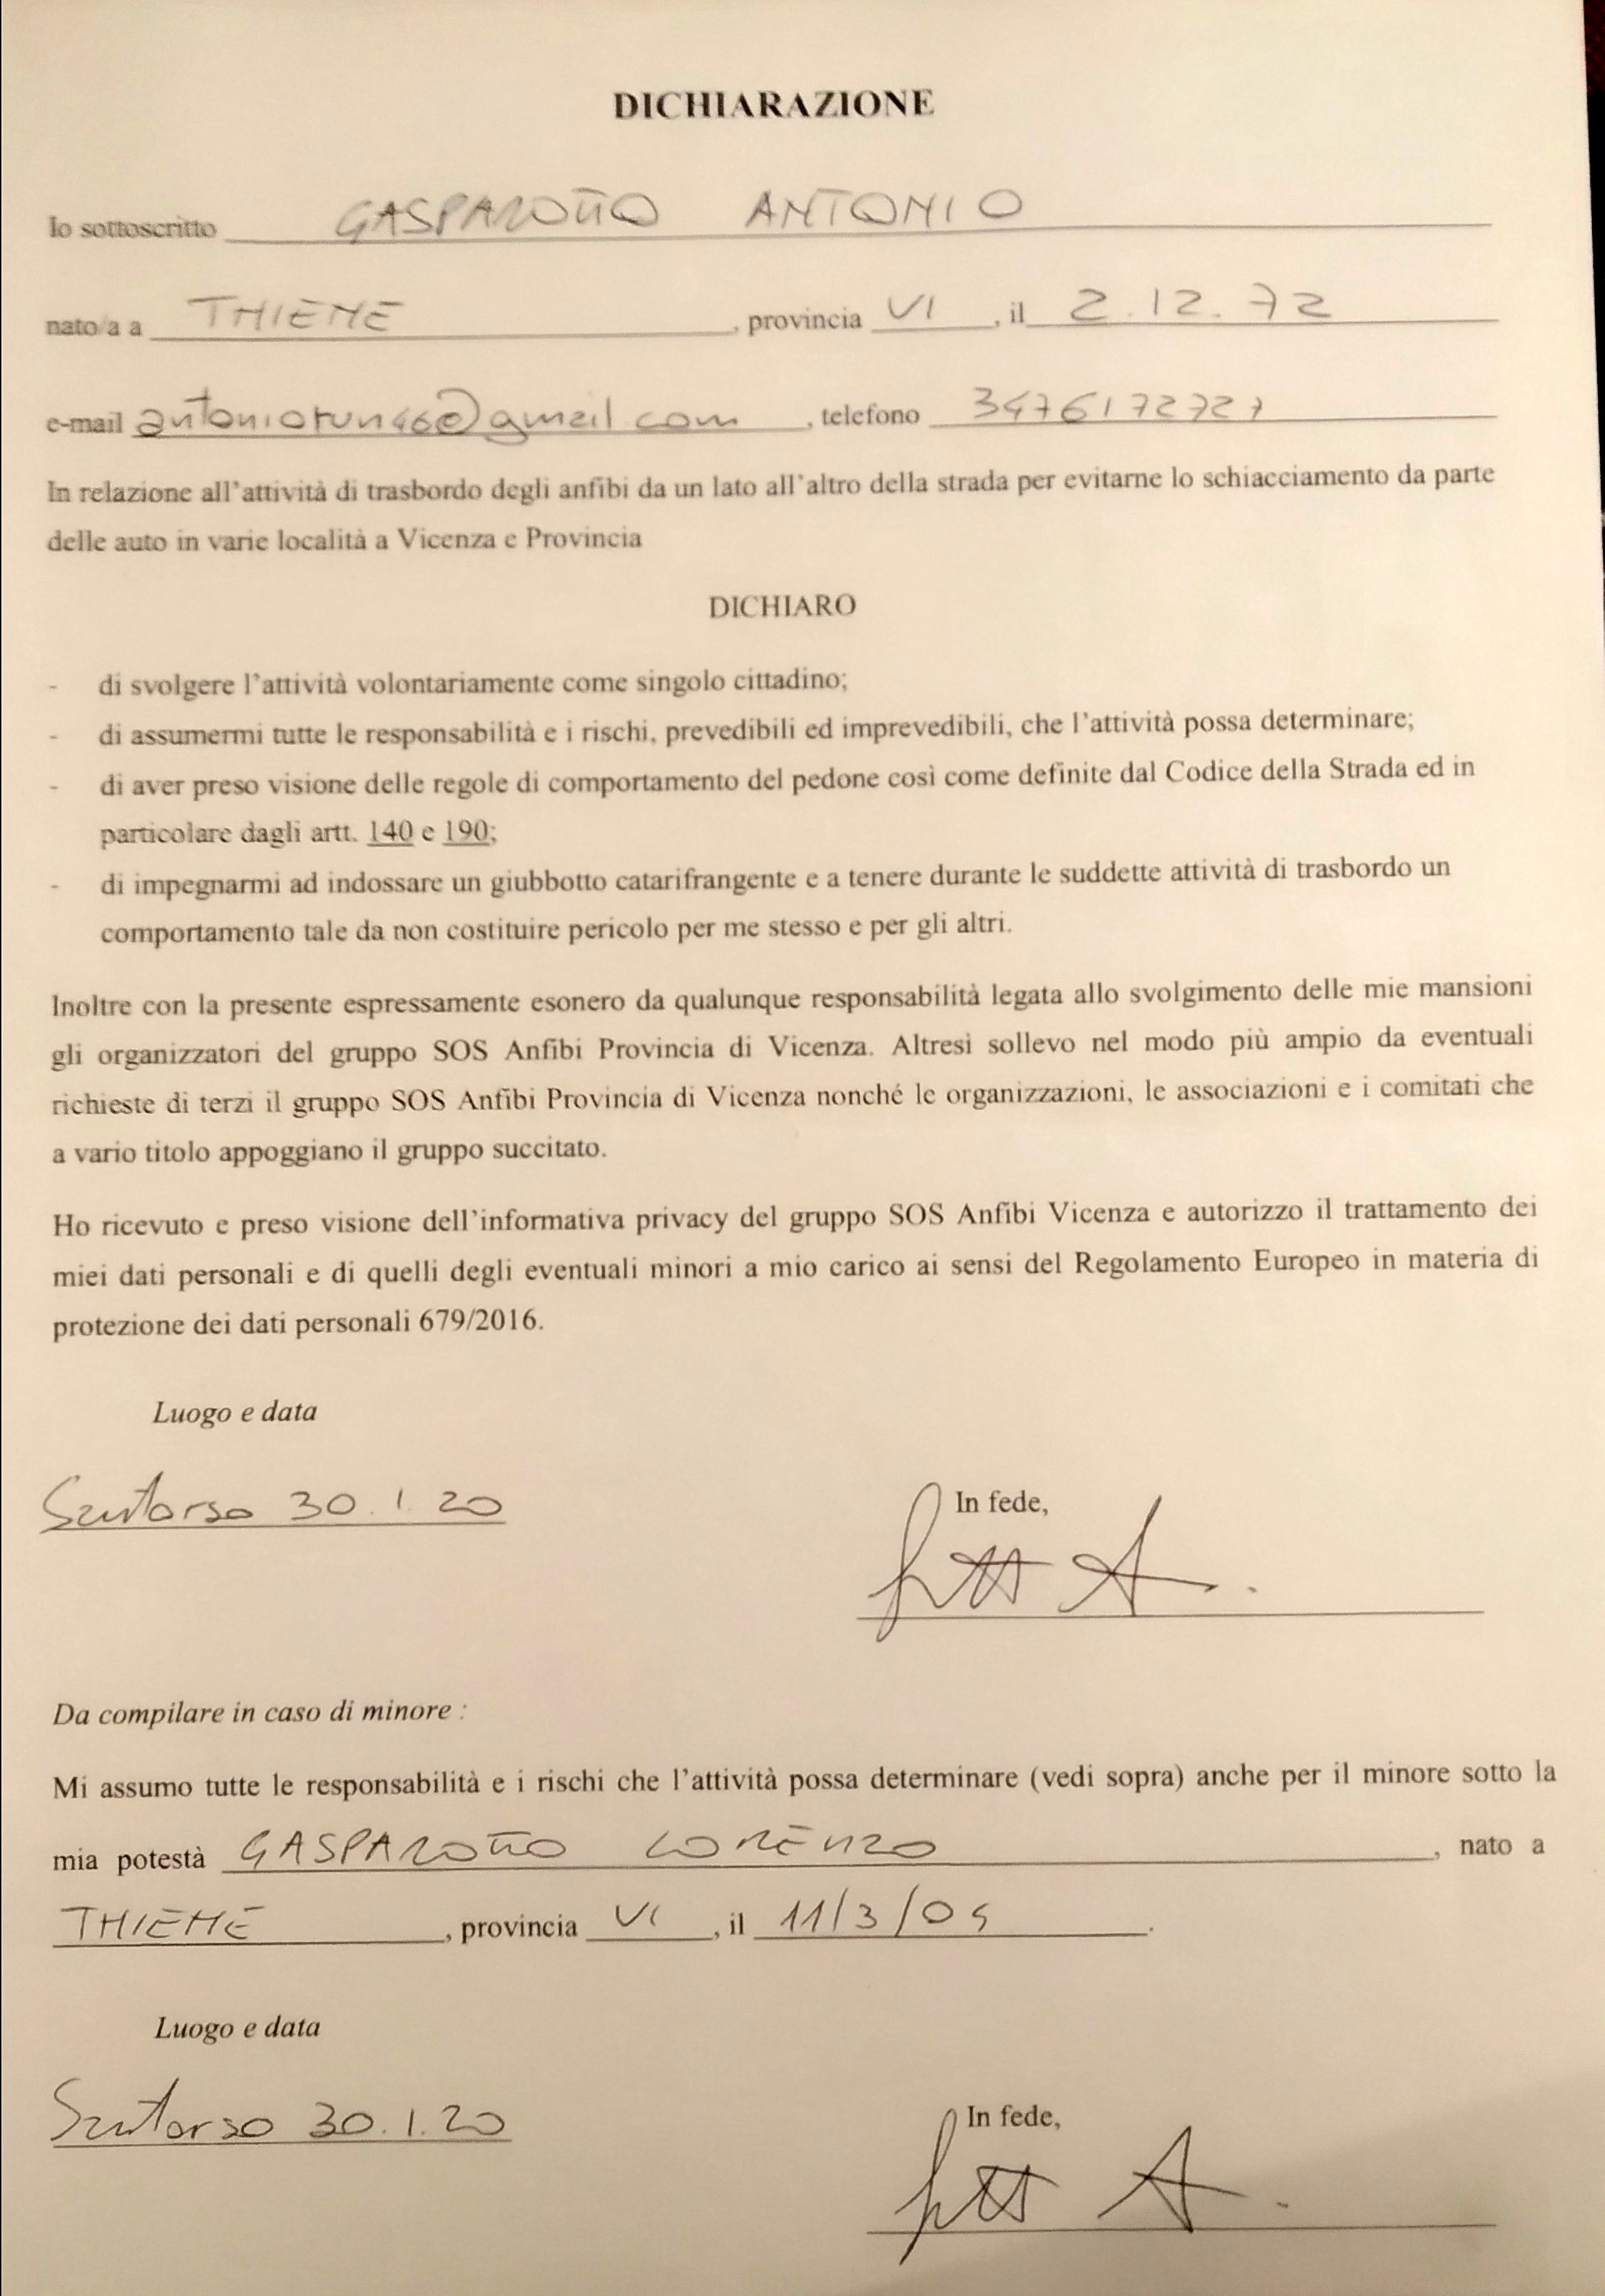 DICHIARAZIONE
Io sottoscritto GASPAROTTO ANTONIO
nato/a a THIENE, provincia VI, il 2.12.72
e-mail antoniorun46@gmail com, telefono 3476172727
In relazione all'attività di trasbordo degli anfibi da un lato all'altro della strada per evitarne lo schiacciamento da parte
delle auto in varie località a Vicenza e Provincia
DICHIARO
- di svolgere l'attività volontariamente come singolo cittadino;
- di assumermi tutte le responsabilità e i rischi, prevedibili ed imprevedibili, che l'attività possa determinare;
- di aver preso visione delle regole di comportamento del pedone così come definite dal Codice della Strada ed in
particolare dagli artt. 140 e 190;
- di impegnarmi ad indossare un giubbotto catarifrangente e a tenere durante le suddette attività di trasbordo un
comportamento tale da non costituire pericolo per me stesso e per gli altri.
Inoltre con la presente espressamente esonero da qualunque responsabilità legata allo svolgimento delle mie mansioni
gli organizzatori del gruppo SOS Anfibi Provincia di Vicenza. Altresì sollevo nel modo più ampio da eventuali
richieste di terzi il gruppo SOS Anfibi Provincia di Vicenza nonché le organizzazioni, le associazioni e i comitati che
a vario titolo appoggiano il gruppo succitato.
Ho ricevuto e preso visione dell'informativa privacy del gruppo SOS Anfibi Vicenza e autorizzo il trattamento dei
miei dati personali e di quelli degli eventuali minori a mio carico ai sensi del Regolamento Europeo in materia di
protezione dei dati personali 679/2016.
Luogo e data
Santorso 30.1.20
In fede,
Da compilare in caso di minore :
Mi assumo tutte le responsabilità e i rischi che l'attività possa determinare (vedi sopra) anche per il minore sotto la
mia potestà GASPAROTTO LORENZO, nato a
THIENE, provincia VI, il 11/3/05.
Luogo e data
Santorso 30.1.20
In fede,